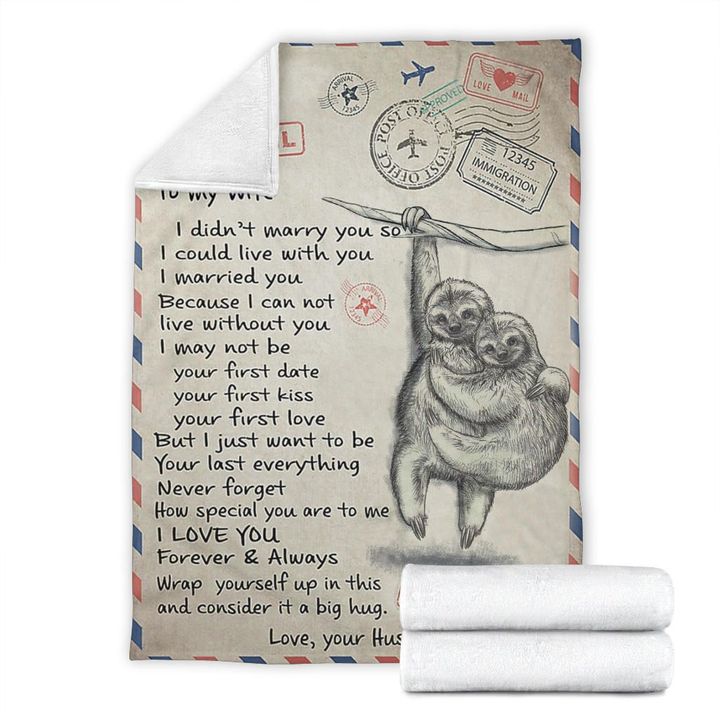 ARRIVAL
12345
APPROVED
LOVE MAIL
POST OFFICE
POST OFFICE
12345
IMMIGRATION
L
To My Wife
I didn't marry you so
I could live with you
I married you
Because I can not
live without you
ARRIVAL
12345
I may not be
your first date
your first kiss
your first love
But I just want to be
Your last everything
Never forget
How special you are to me
I LOVE YOU
Forever & Always
Wrap yourself up in this
and consider it a big hug.
Love, your Hus